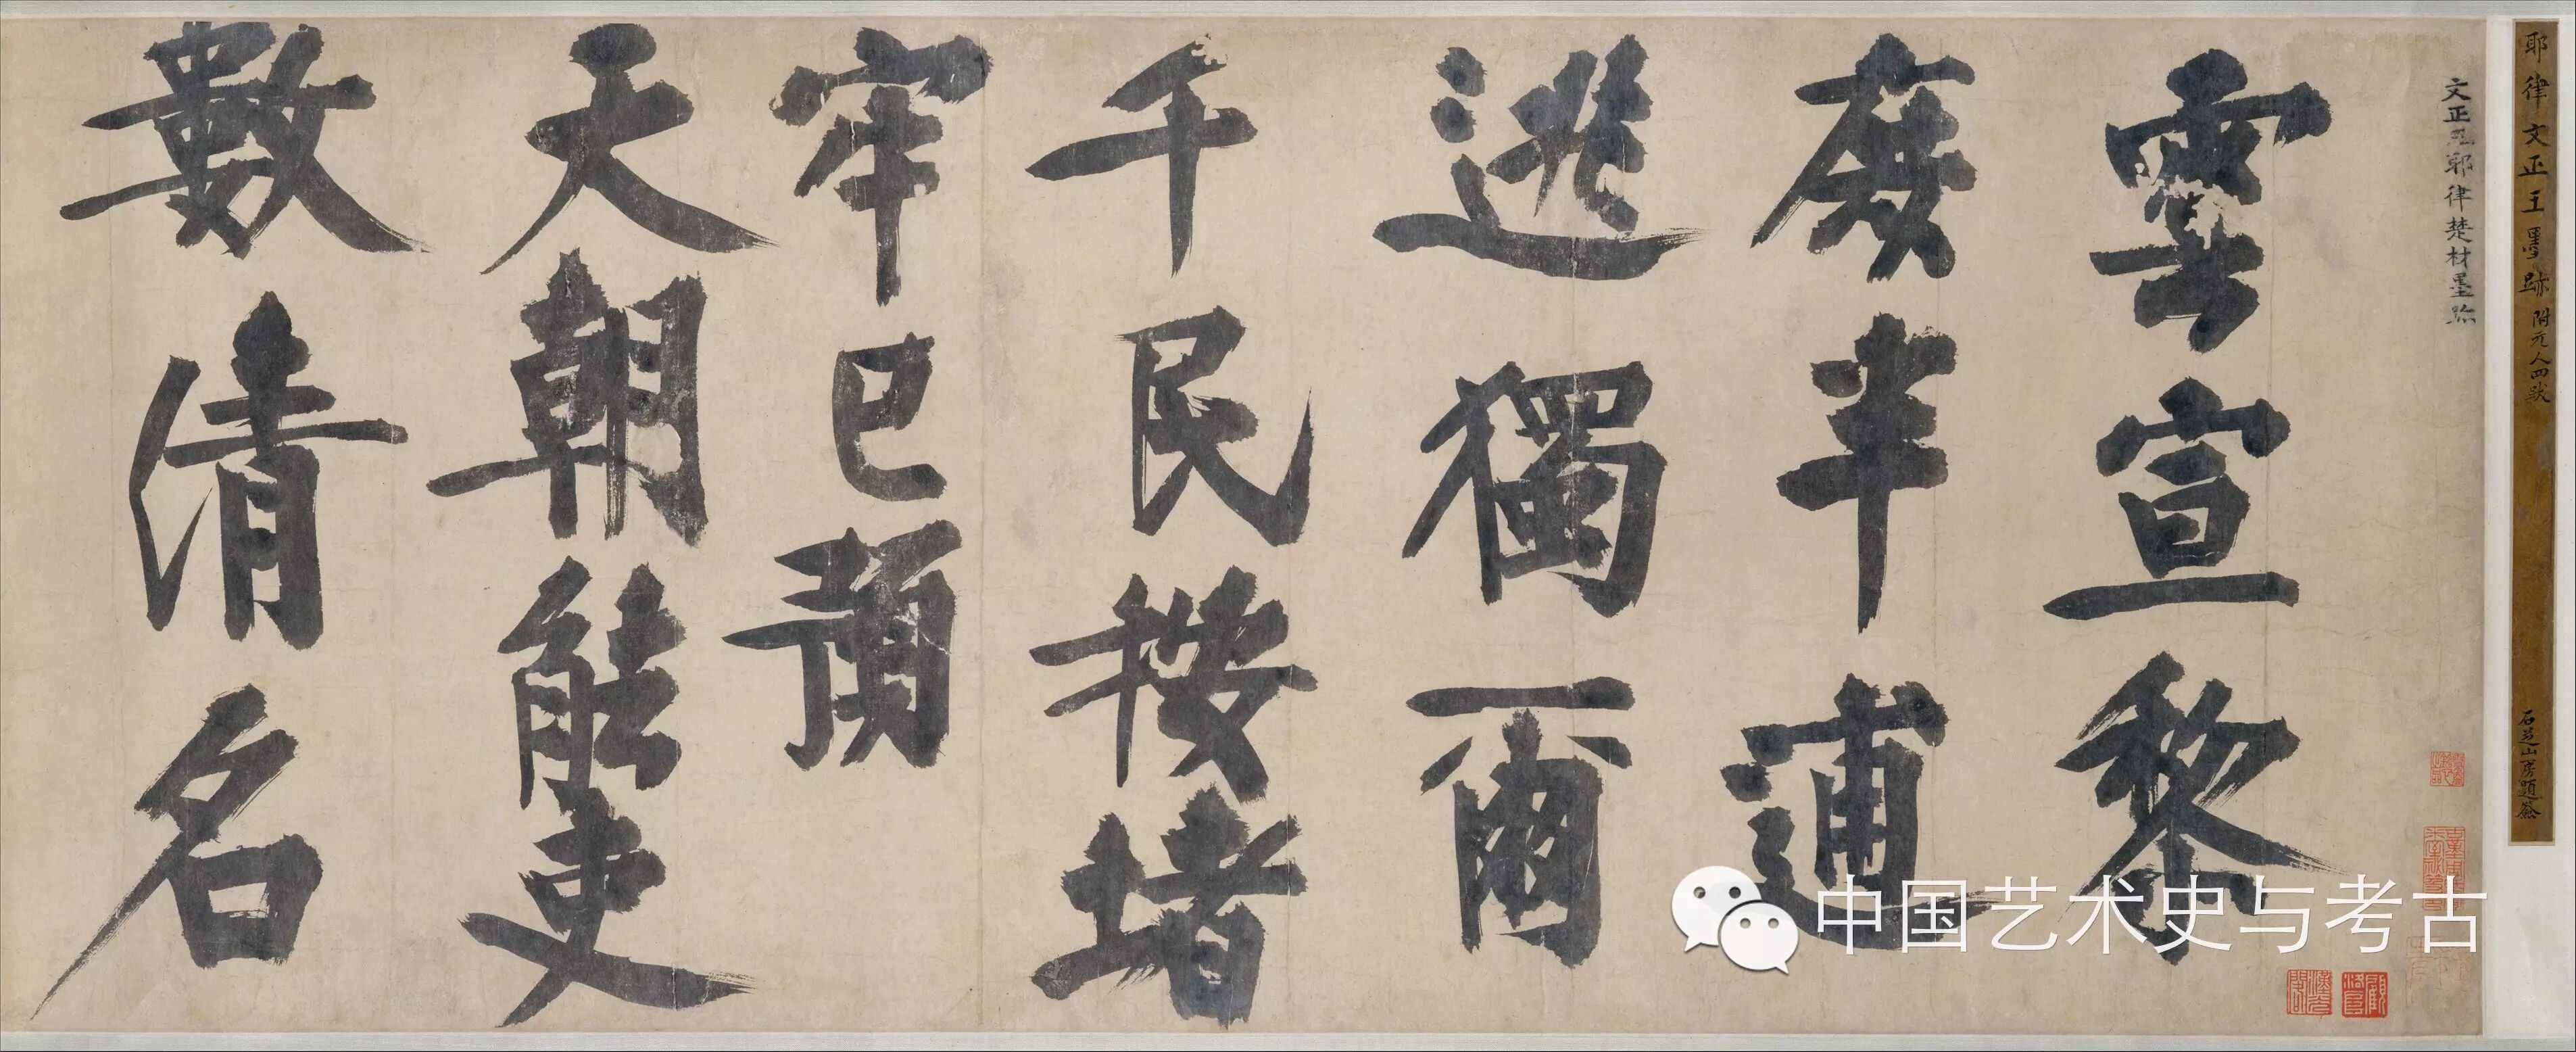 耶律文正王墨跡 附元人四跋
石芝山房題簽
文正王耶律楚材墨跡
雲宣黎
庶半逋
逃獨爾
千民按堵
牢已預
天朝能吏
數清名
中国艺术史与考古